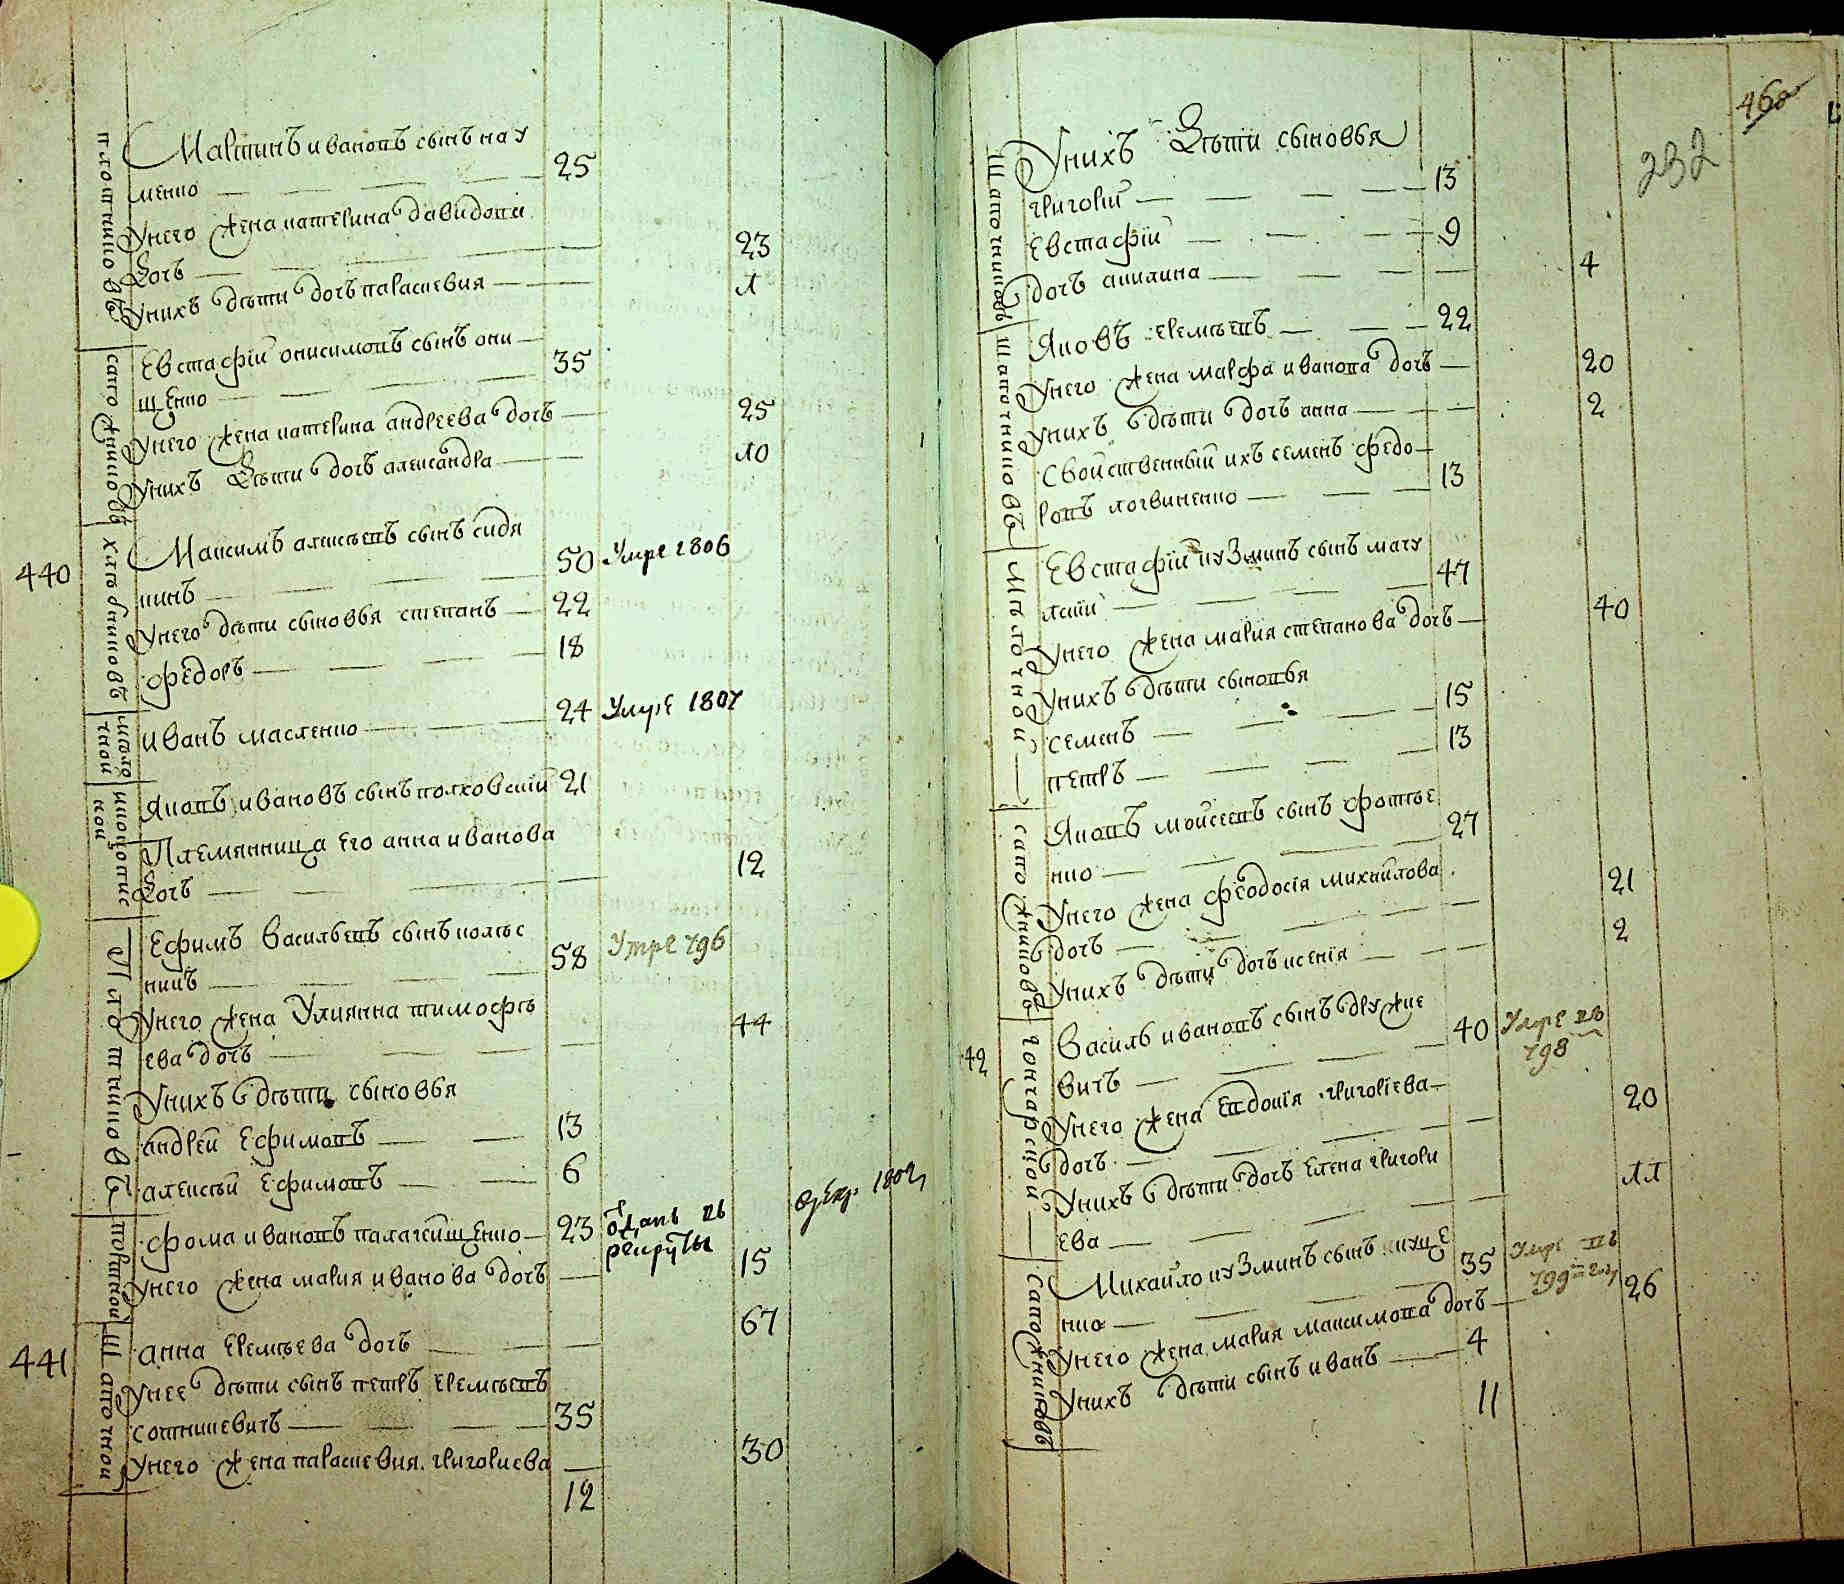 Мартинъ ивановъ сынъ нау
менко 25
унего жена катерина давидова
дочь 23
унихъ дѣти дочь параскевия 1
плотниковъ
Евстафій онисимовъ сынъ они
щенко 35
унего жена катерина андреева дочь 25
унихъ дѣти дочь александра 10
сапожниковъ
440
Максимъ алексѣевъ сынъ сидя
кинъ 50 умре 1806
унего дѣти сыновья степанъ 22
федоръ 18
хлѣбниковъ
иванъ масленко 24 умре 1807
Яковъ ивановъ сынъ полховский 21
Племянница его анна иванова
дочь 12
иконопис
ной
Ефимъ васильевъ сынъ колѣс
никъ 58 умре 796
унего жена Улиянна тимофѣ
ева дочь 44
унихъ дѣти сыновья
андрей Ефимовъ 13
алексѣй Ефимовъ 6
Плотниковъ
фома ивановъ палагейщенко 23 отданъ въ рекруты
унего жена мария иванова дочь 15
441
анна еремѣева дочь 67
унее дѣти сынъ петръ еремѣевъ
сотникевичъ 35
унего жена параскевия григориева 30
Шапочной
12
460
232
Унихъ дѣти сыновья
григорій 13
Евстафій 9
дочь акилина 4
Шапочниковъ
Яковъ еремѣевъ 22
унего жена марфа иванова дочь 20
унихъ дѣти дочь анна 2
Свойственный ихъ семенъ федо
ровъ логвиненко 13
Шапочниковъ
Евстафій кузминъ сынъ мачу
лский 47
унего жена мария степанова дочь 40
унихъ дѣти сыновья
семенъ 15
петръ 13
Яковъ мойсеевъ сынъ фотѣе
нко 27
унего жена феодосія михайлова
дочь 21
унихъ дѣти дочь ксенія 2
сапожниковъ
42
Василь ивановъ сынъ дружке
вичъ 40 умре въ 798
унего жена Евдокія григоріева
дочь 20
унихъ дѣти дочь Елена григори
ева 11
гончарской
Михайло кузминъ сынъ куце
нко 35 умре въ 799м году
унего жена мария максимова дочь 26
унихъ дѣти сынъ иванъ 4
сапожниковъ
11